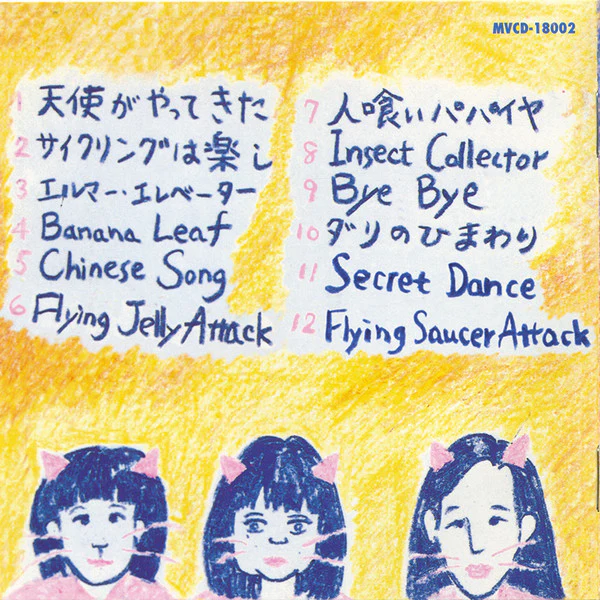 MVCD-18002
1 天使がやってきた
2 サイクリングは楽し
3 エルマー・エレベーター
4 Banana Leaf
5 Chinese Song
6 Flying Jelly Attack
7 人喰いパパイヤ
8 Insect Collector
9 Bye Bye
10 ダリのひまわり
11 Secret Dance
12 Flying Saucer Attack